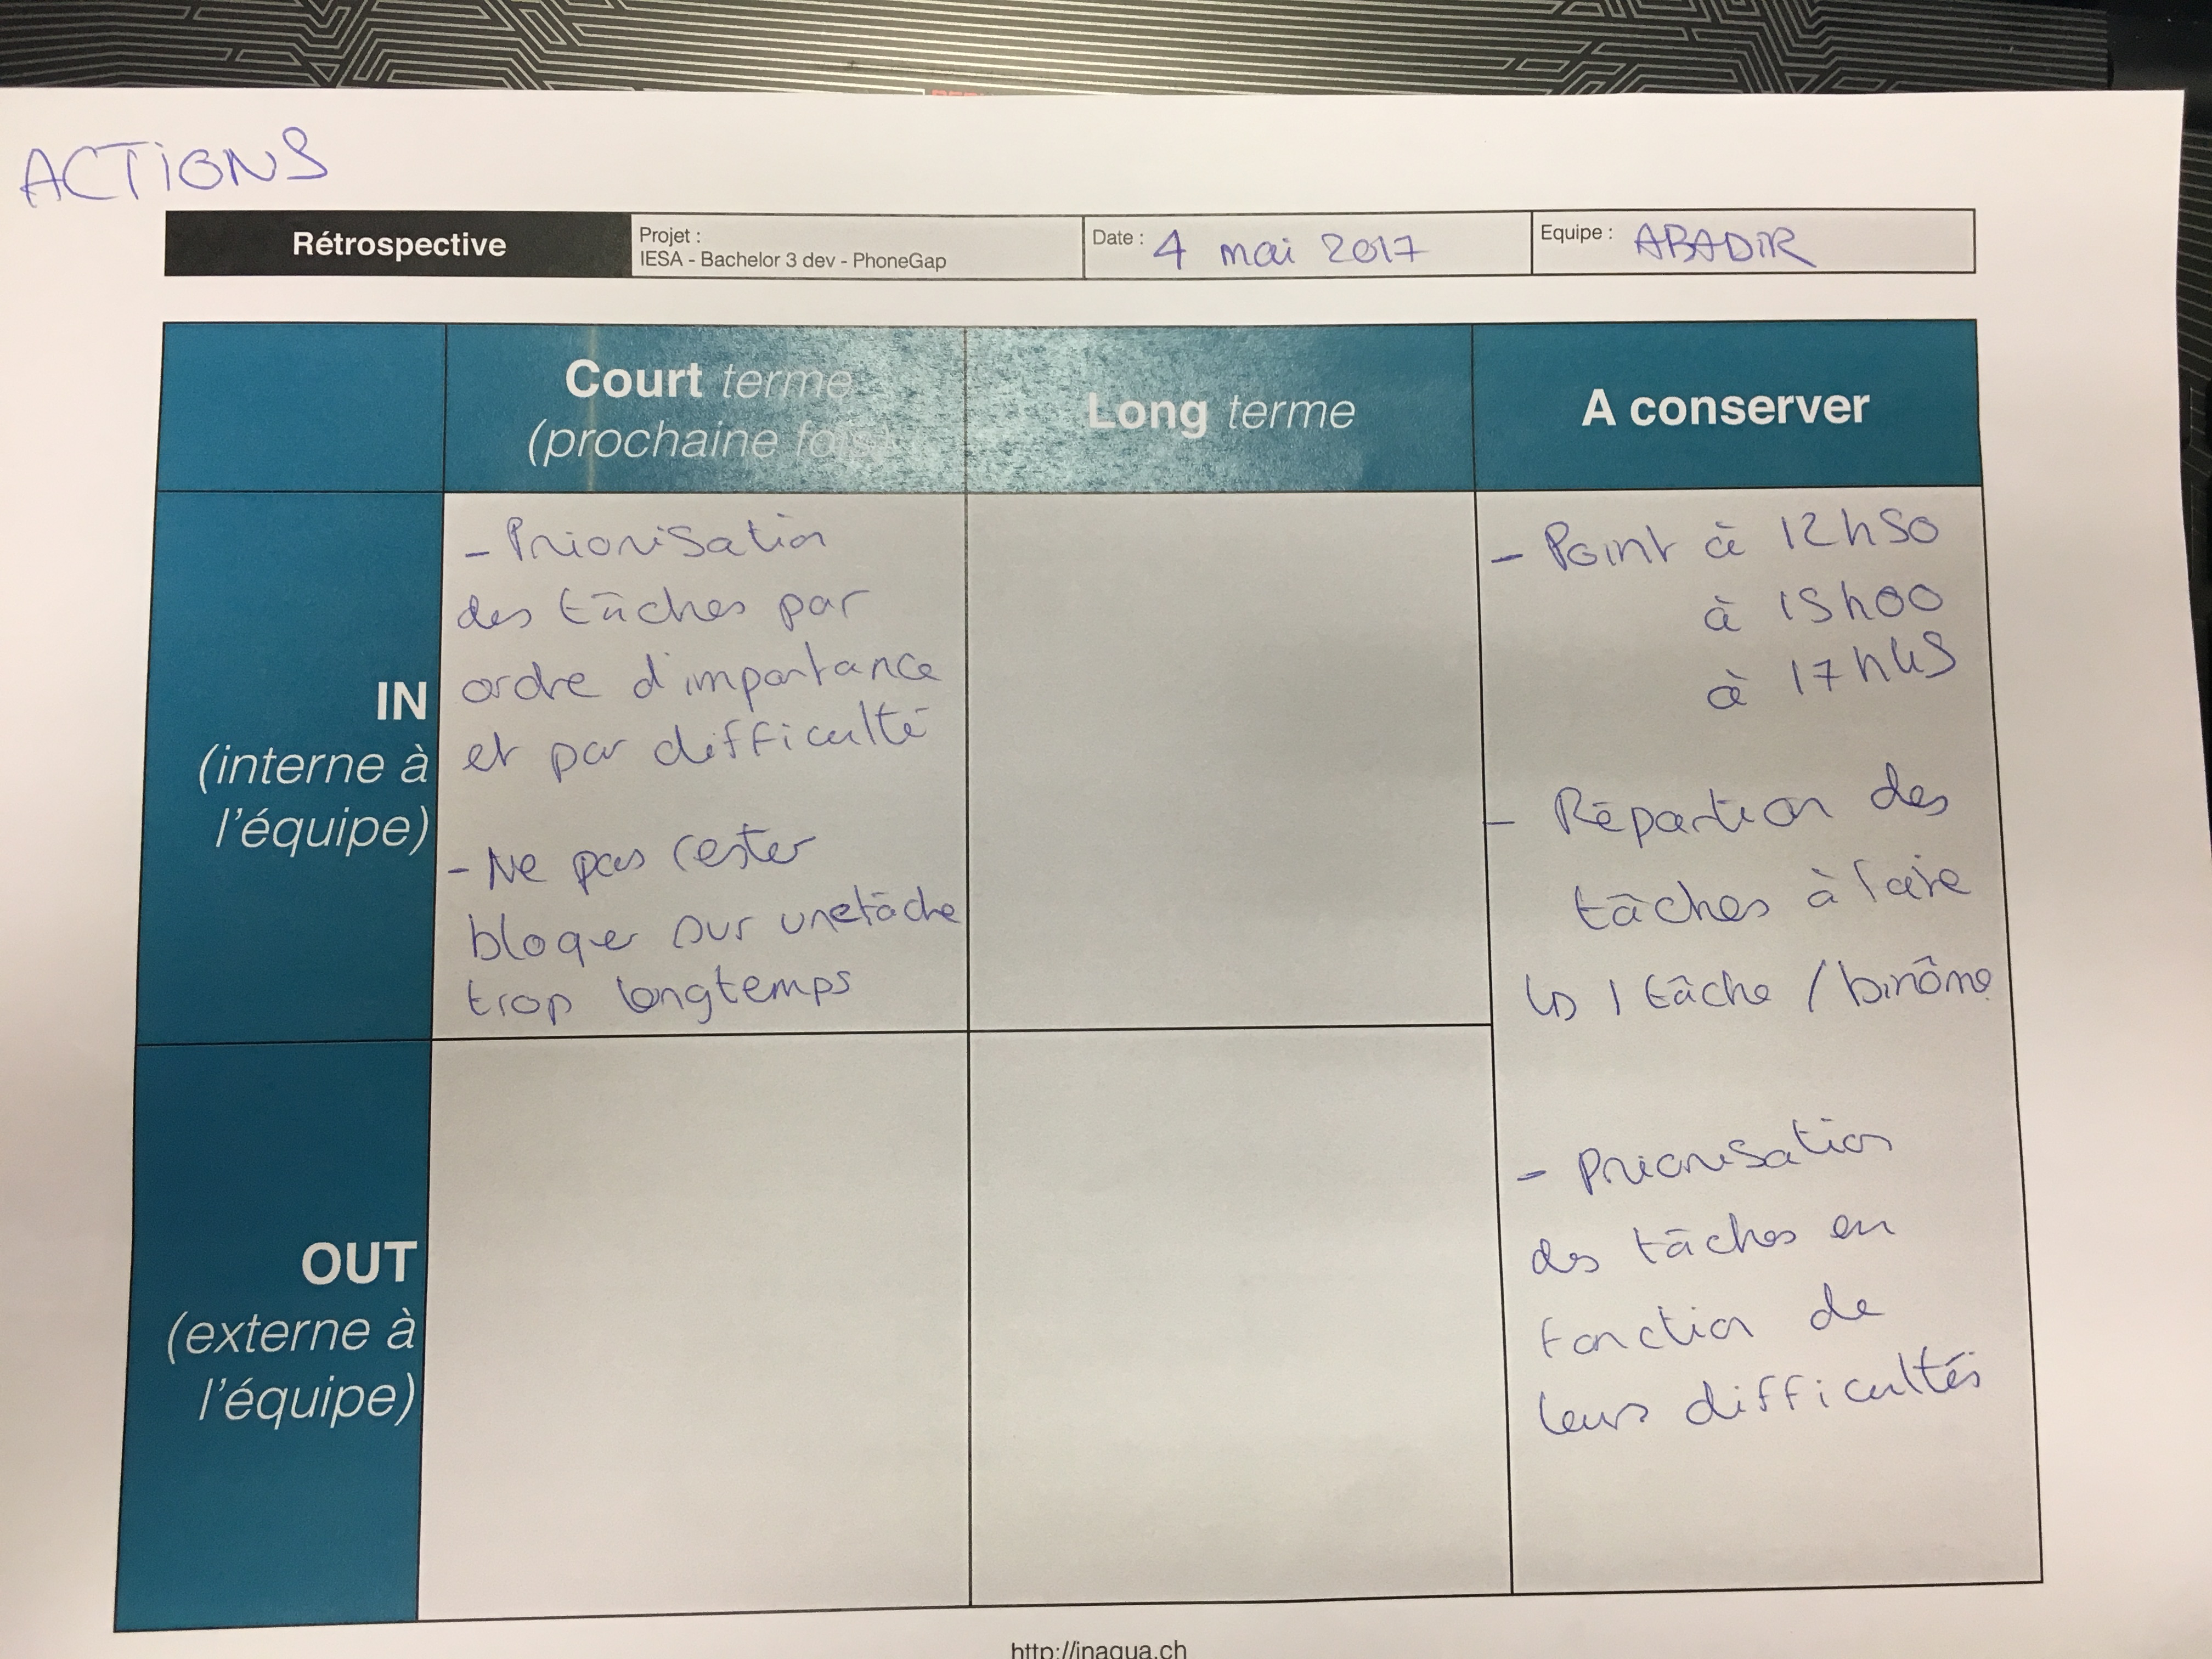 ACTIONS
Rétrospective
Projet :
IESA - Bachelor 3 dev - PhoneGap
Date : 4 mai 2017
Equipe : ABADIR
Court terme
(prochaine fois)
Long terme
A conserver
IN
(interne à
l'équipe)
- Priorisation
des tâches par
ordre d'importance
et par difficulté
- Ne pas rester
bloquer sur une tâche
trop longtemps
- Point à 12h50
à 15h00
à 17h45
- Répartion des
tâches à faire
↳ 1 tâche / binôme
- Priorisation
des tâches en
fonction de
leurs difficultés
OUT
(externe à
l'équipe)
http://inaqua.ch